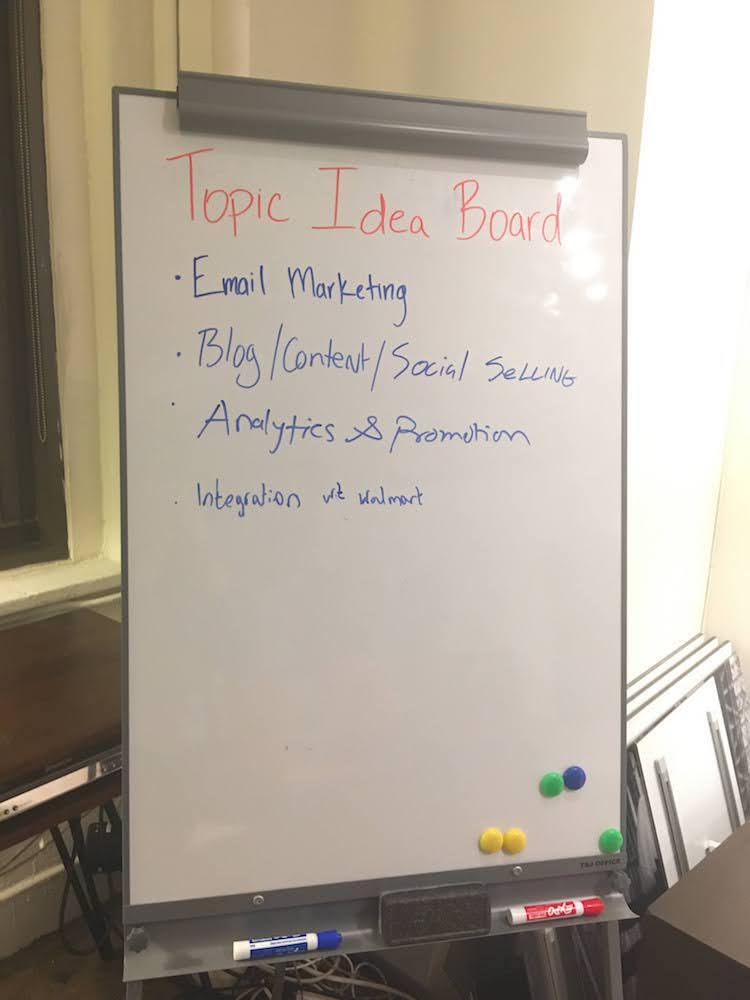 Topic Idea Board
· Email Marketing
· Blog/Content/Social SELLING
· Analytics & Promotion
· Integration wt walmart
EXPO